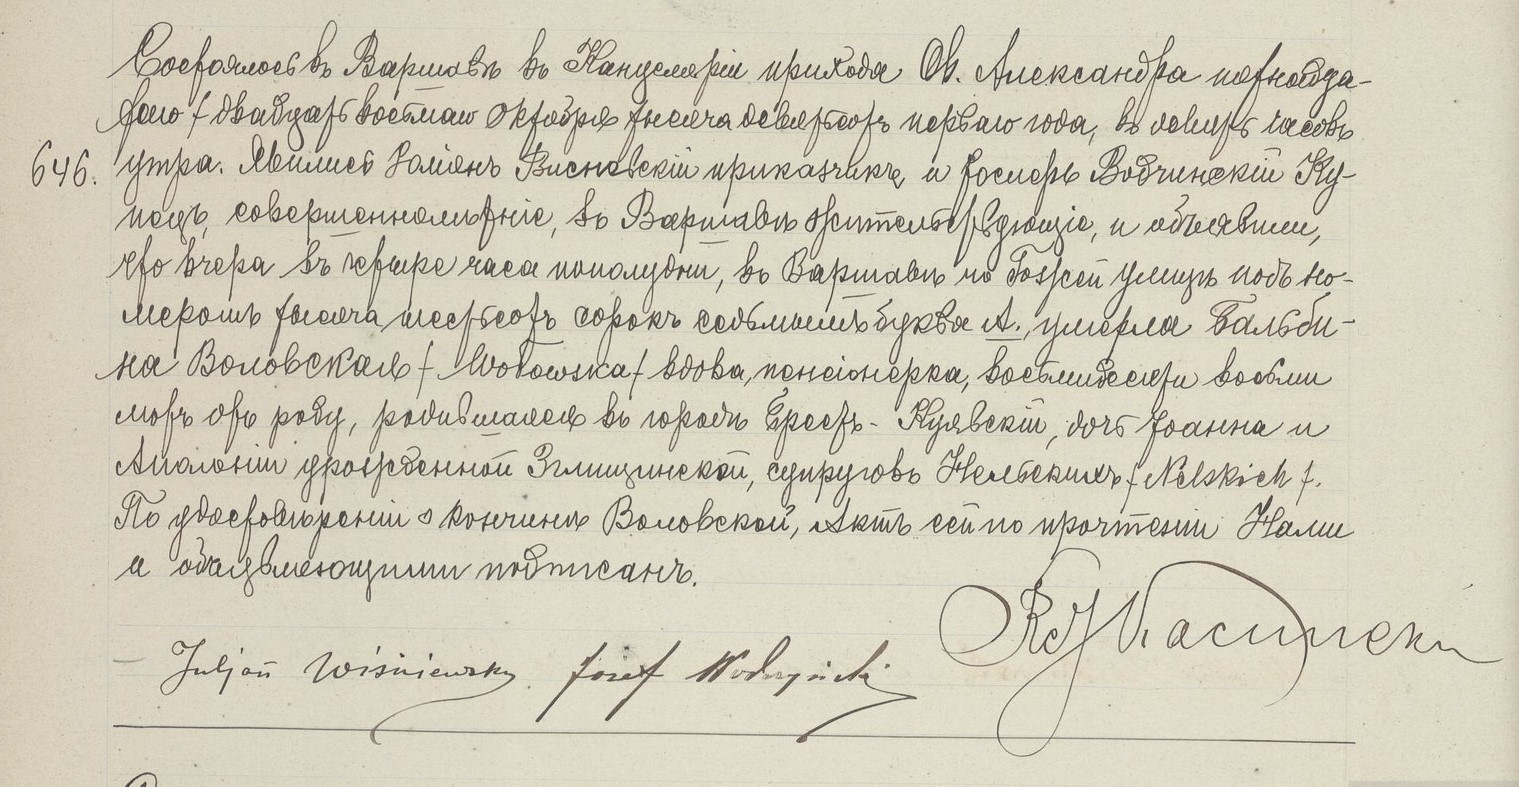 Состоялось въ Варшавѣ въ Канцеляріи прихода Св. Александра пятнадца-
таго / двадцать восьмаго Октября тысяча девятьсотъ перваго года, въ девять часовъ
646. утра. Явились Юліянъ Висневскій приказчикъ, и Іосифъ Водчинскій Ку-
пецъ, совершеннолѣтніе, въ Варшавѣ жительствующіе, и объявили,
что вчера въ четыре часа пополудни, въ Варшавѣ по Гожей улицѣ подъ но-
меромъ тысяча шестьсотъ сорокъ седьмымъ буква А., умерла Бальби-
на Воловская / Wołowska / вдова, пенсіонерка, восьмидесяти восьми
лѣтъ отъ роду, родившаяся въ городѣ Брестъ-Куявскій, дочь Іоанна и
Аполоніи урожденной Зглищинской, супруговъ Нельскихъ / Nelskich /.
По удостовѣреніи о кончинѣ Воловской, Актъ сей по прочтеніи Нами
и объявляющими подписанъ.
Juljan Wiśniewsky Józef Wodczyński